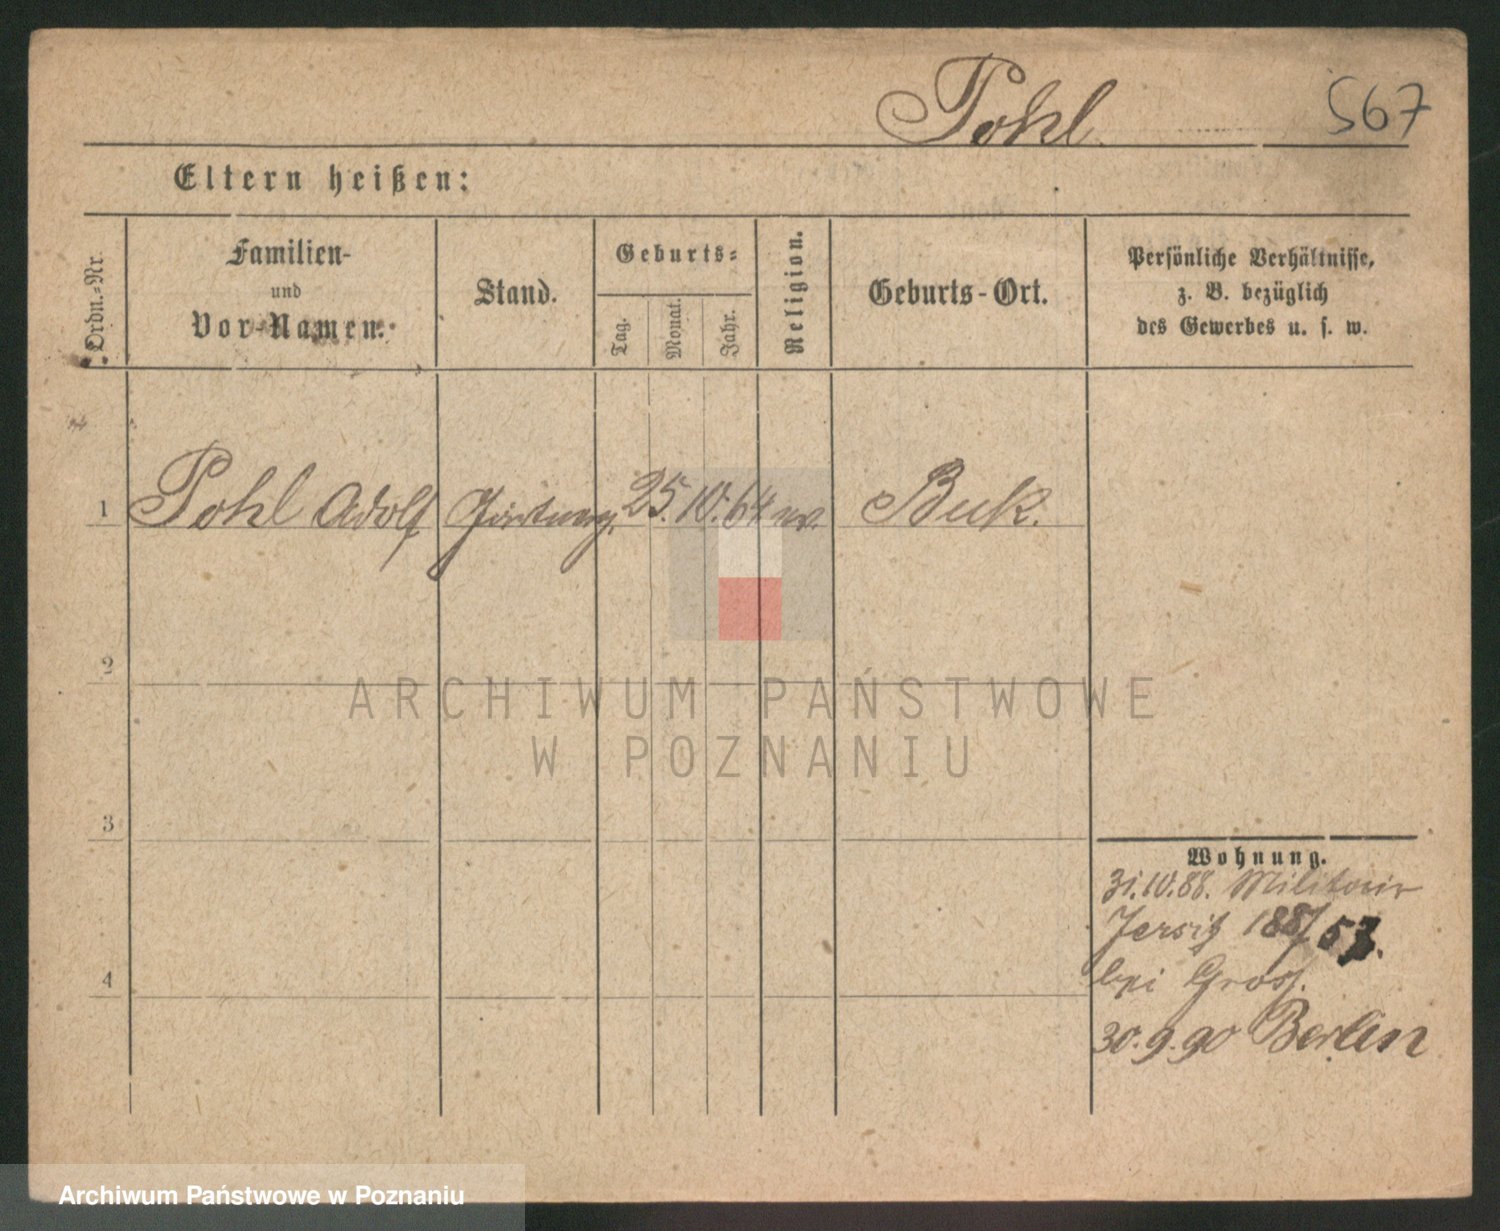 Pohl
567
Eltern heißen:
Ordn.-Nr.
Familien-
und
Vor-Namen.
Stand.
Geburts-
Tag.
Monat.
Jahr.
Religion.
Geburts-Ort.
Persönliche Verhältnisse,
z. B. bezüglich
des Gewerbes u. s. w.
1 Pohl Adolf 25. 10. 64 ev. Buk.
2
3
4
Wohnung.
31.10.88. Militair
Jersitz 188/53.
bei Gross.
30.9.90 Berlin
ARCHIWUM PAŃSTWOWE
W POZNANIU
Archiwum Państwowe w Poznaniu